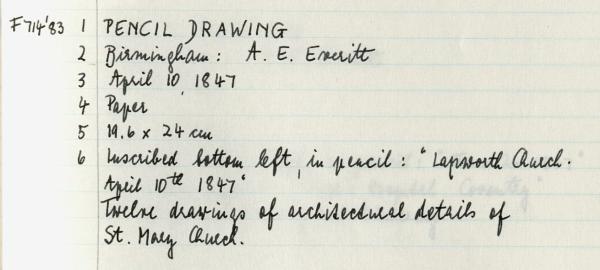 F714'83 1 PENCIL DRAWING
2 Birmingham: A. E. Everitt
3 April 10, 1847
4 Paper
5 19.6 x 24 cm
6 Inscribed bottom left, in pencil: "Lapworth Church.
April 10th 1847"
Twelve drawings of architectural details of
St. Mary Church.